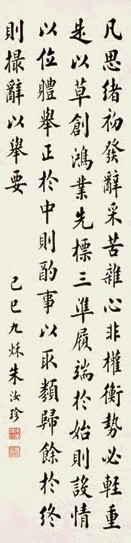 凡思緒初發辭采苦雜心非權衡勢必輕重
是以草創鴻業先標三準履端於始則設情
以位體舉正於中則酌事以取類歸餘於終
則撮辭以舉要
己巳九秋朱汝珍